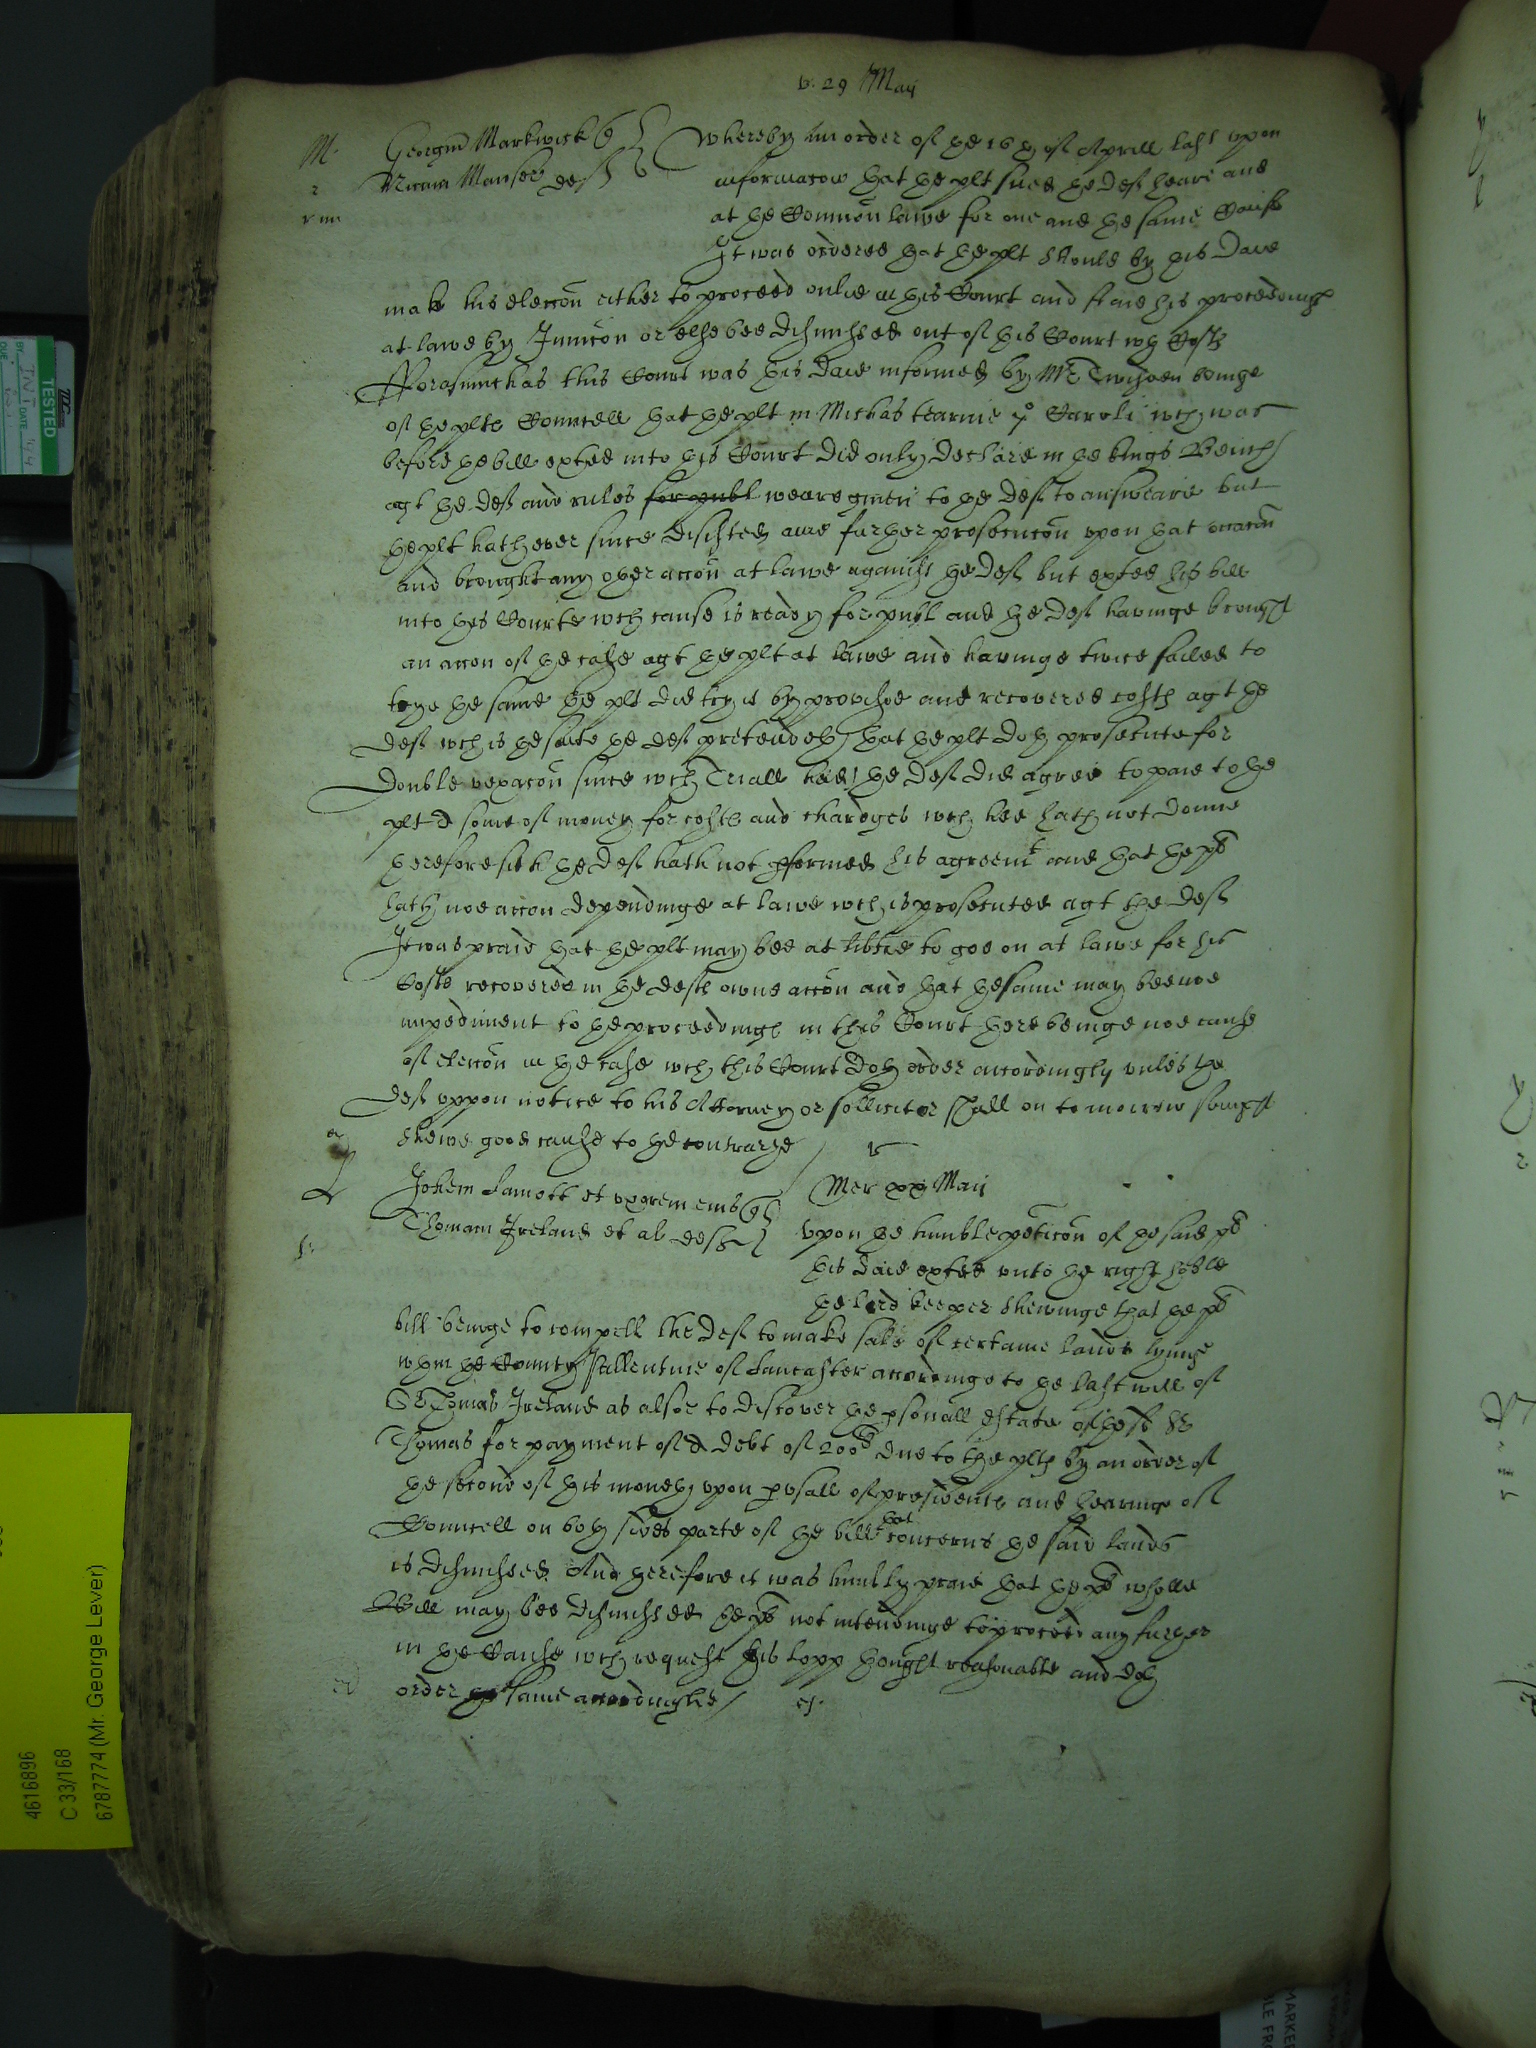 v. 29 Maij
M. Georgiu Markwick q
Manser def
whereby an order of the 16th of Aprill last upon
informacon that the plt sues the deft heare and
at the Common lawe for one and the same Cause
It was ordered that the plt should by this daie
make his eleccon either to proceed onlie in this Court and staie his proceedings
at lawe by Iniuccon or else bee dismissed out of this Court wth Costs
Fforasmuch as this Court was this daie informed by Mr Twisden beinge
of the plts Councell that the plt in Michas tearme 7o Caroli wch was
before the bill exhted into this Court did only declare in the kings Bench
agt the deft and rules for publ weare given to the deft to answeare but
the plt hath ever since desisted anie further prosecucon upon that accon
and brought any other accon at lawe against the deft but exhted his bill
into this Courte wch cause is ready for publ and the deft havinge brought
an accon of the case agt the plt at lawe and havinge twice failed to
trye the same the plt did try it by provisoe and recovered costs agt the
deft wch is the suite the deft pretendeth that the plt doth prosecute for
double vexacon since wch Triall had the deft did agree to paie to the
plt a some of money for costs and chardges wch hee hath not donne
therefore sith the deft hath not pformed his agreemt and that the plt
hath noe accon dependinge at lawe wch is prosecuted agt the deft
It was praid that the plt may bee at libtie to goe on at lawe for his
Costs recovered in the defts owne accon and that the same may bee noe
impediment to the proceedings in this Court there beinge noe cause
of eleccon in the case wch this Court doth order accordingly unles the
deft uppon notice to his Attorney or sollicitor shall on to morrow sennight
shewe good cause to the contrarye
Mer xxx Maij
L Johem Lamott et uxorem eius q
Thomam Ireland et al deft
upon the humble peticon of the said plt
this daie exhted unto the right hoble
the lord keeper shewinge that the plt
bill beinge to compell the deft to make sale of certaine lands lyinge
wthin the County Pallentine of Lancaster accordinge to the last will of
Sr Thomas Ireland as alsoe to discover the psonall estate of the sd Sr
Thomas for payment of a debt of 200l due to the plts by an order of
the second of this moneth upon pusall of presidents and hearinge of
Councell on both sides parte of the bill that concerns the said lands
is dismissed. And therefore it was humbly praid that the plt wholle
Bill may bee dismissed the plt not intendinge to proceed any further
in the Cause wch request his lopp thought reasonable and doth
order the same accordinglie
TESTED
4616896
C 33/168
6787774 (Mr. George Lever)